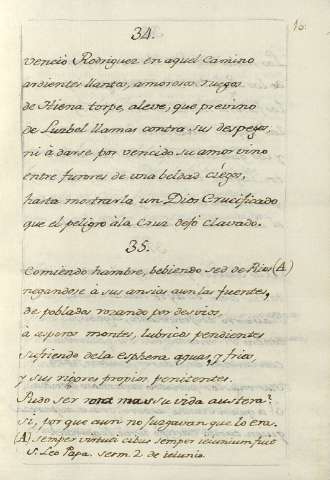 15.
34.
Venció Rodriguez en aquel camino
ardientes llantos, amorosos ruegos
de Hiena torpe, aleve, que previno
de Luzbel llamas contra sus despegos,
ni à darse por vencido su amor vino
entre furores de una beldad ciegos,
hasta mostrarla un Dios Crucificado
que el peligro àla Cruz dejó clavado.
35.
Comiendo hambre, bebiendo sed de Rios (A)
negandose à sus ansias aun las fuentes,
de poblados rozando por desvios,
à asperos montes, lubricas pendientes
Sufriendo dela esphera aguas, y frios,
y sus rigores propios penitentes.
Pudo ser mas su vida austera?
Si, por que aun no juzgavan que lo era.
(A) Semper virtuti cibus semper ieiunium fuit
S. Leo Papa. Serm. 2 de ieiunio.